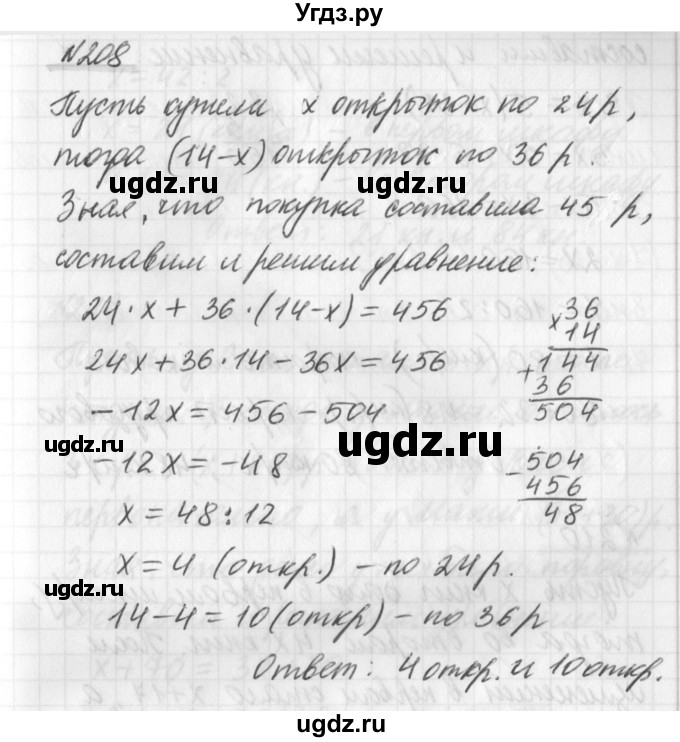 Угдз.ру
№208
Пусть купили x открыток по 24 р,
тогда (14-x) открыток по 36 р.
ugdz.ru ugdz.ru
Зная, что покупка составила 45 р,
составим и решим уравнение:
24·x + 36·(14-x) = 456
24x + 36·14 - 36x = 456
-12x = 456 - 504
-12x = -48
x = 48:12
x = 4 (откр.) - по 24 р.
14 - 4 = 10 (откр) - по 36 р
Ответ: 4 откр. и 10 откр.
36
×
14
144
+
36
504
504
-
456
48
ugdz.ru
ugdz.ru
ugdz.ru
ugdz.ru
ugdz.ru
ugdz.ru